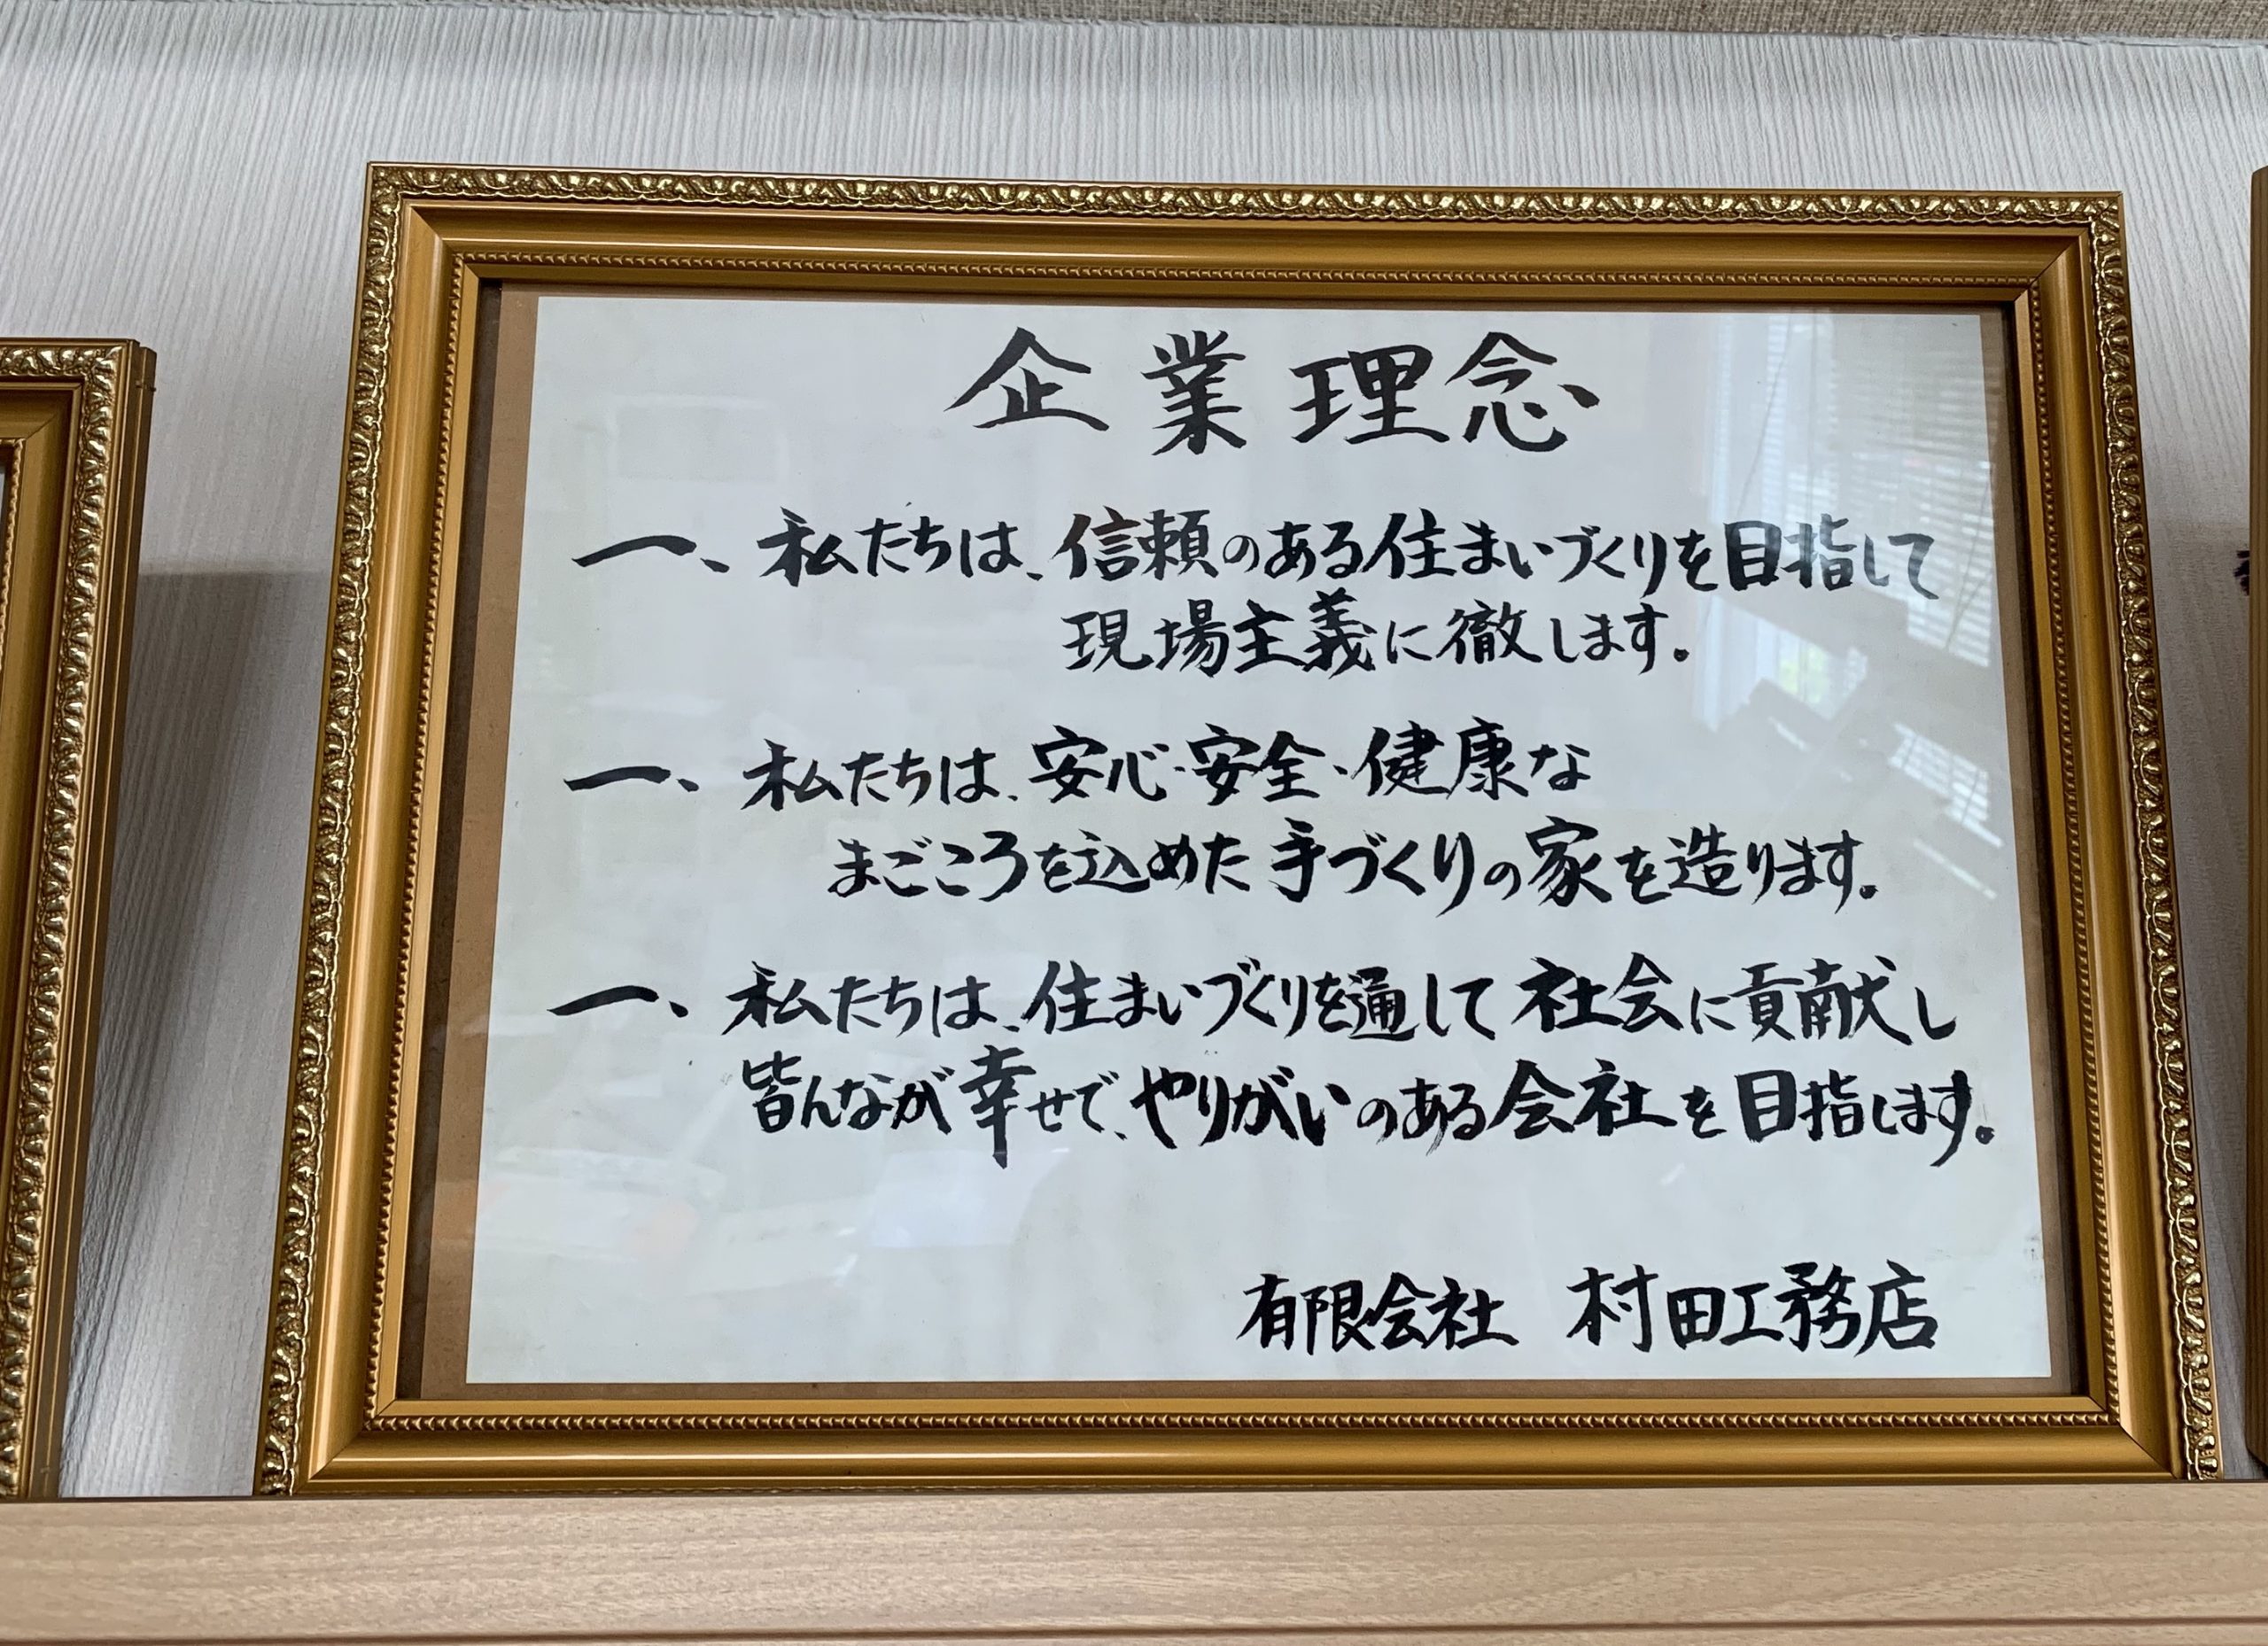 企業理念
一、私たちは、信頼のある住まいづくりを目指して
現場主義に徹します。
一、私たちは、安心・安全・健康な
まごころを込めた手づくりの家を造ります。
一、私たちは、住まいづくりを通して社会に貢献し
皆んなが幸せで、やりがいのある会社を目指します。
有限会社 村田工務店